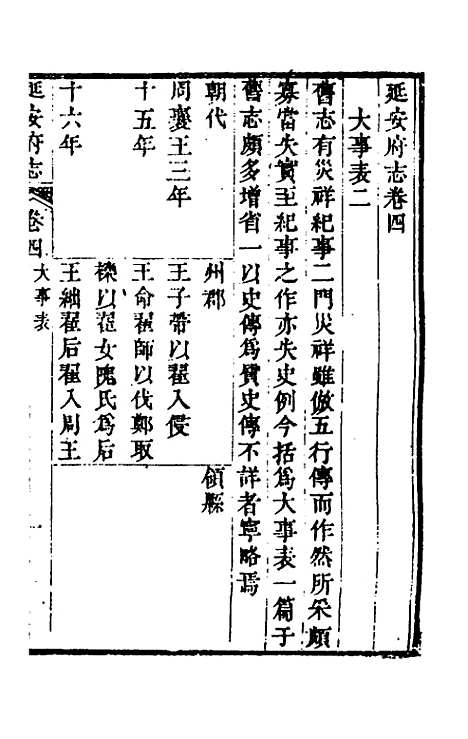 延安府志卷四
大事表二
舊志有災祥紀事二門災祥雖倣五行傳而作然所采頗
寡當失實至紀事之作亦失史例今括為大事表一篇于
舊志頗多增省一以史傳為質史傳不詳者寧略焉
朝代 州郡 領縣
周襄王三年 王子帶以翟入侵
十五年 王命翟師以伐鄭取
櫟以翟女隗氏為后
十六年 王絀翟后翟入周王
延安府志 卷四 大事表 一